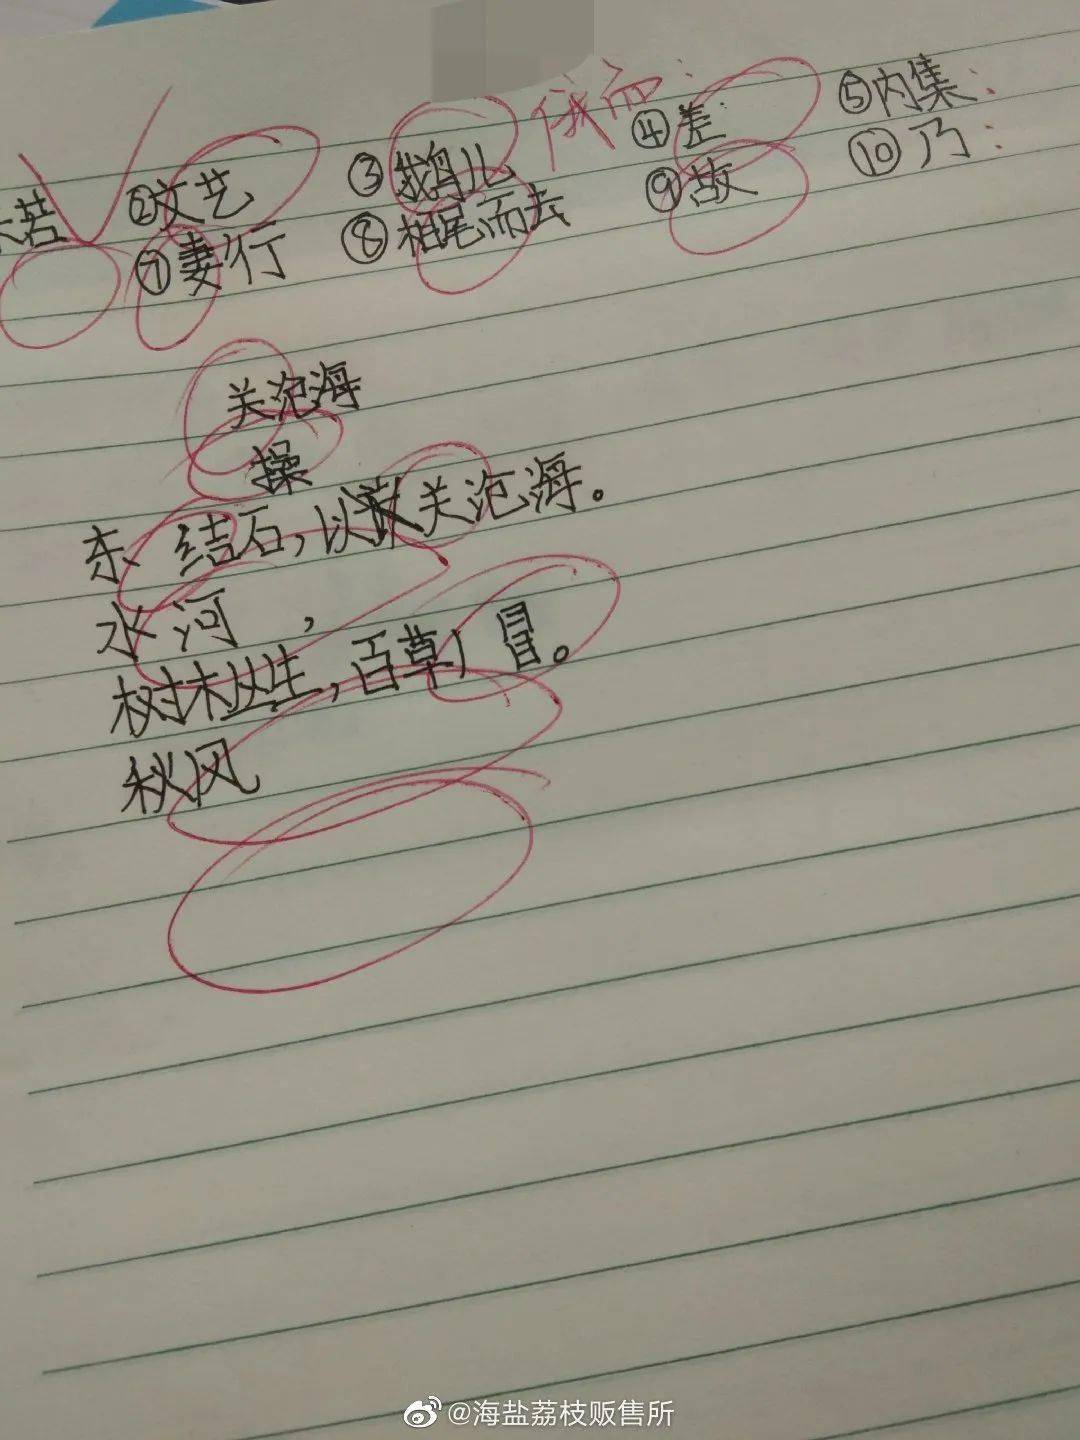 俄而:
若 ②文艺 ③鹅儿 ④差 ⑤内集:
⑦妻行 ⑧相尾而去 ⑨故 ⑩乃:
关沧海
操
东 结石,以 关沧海。
水河 ,
树木丛生,百草广冒。
秋风
@海盐荔枝贩售所